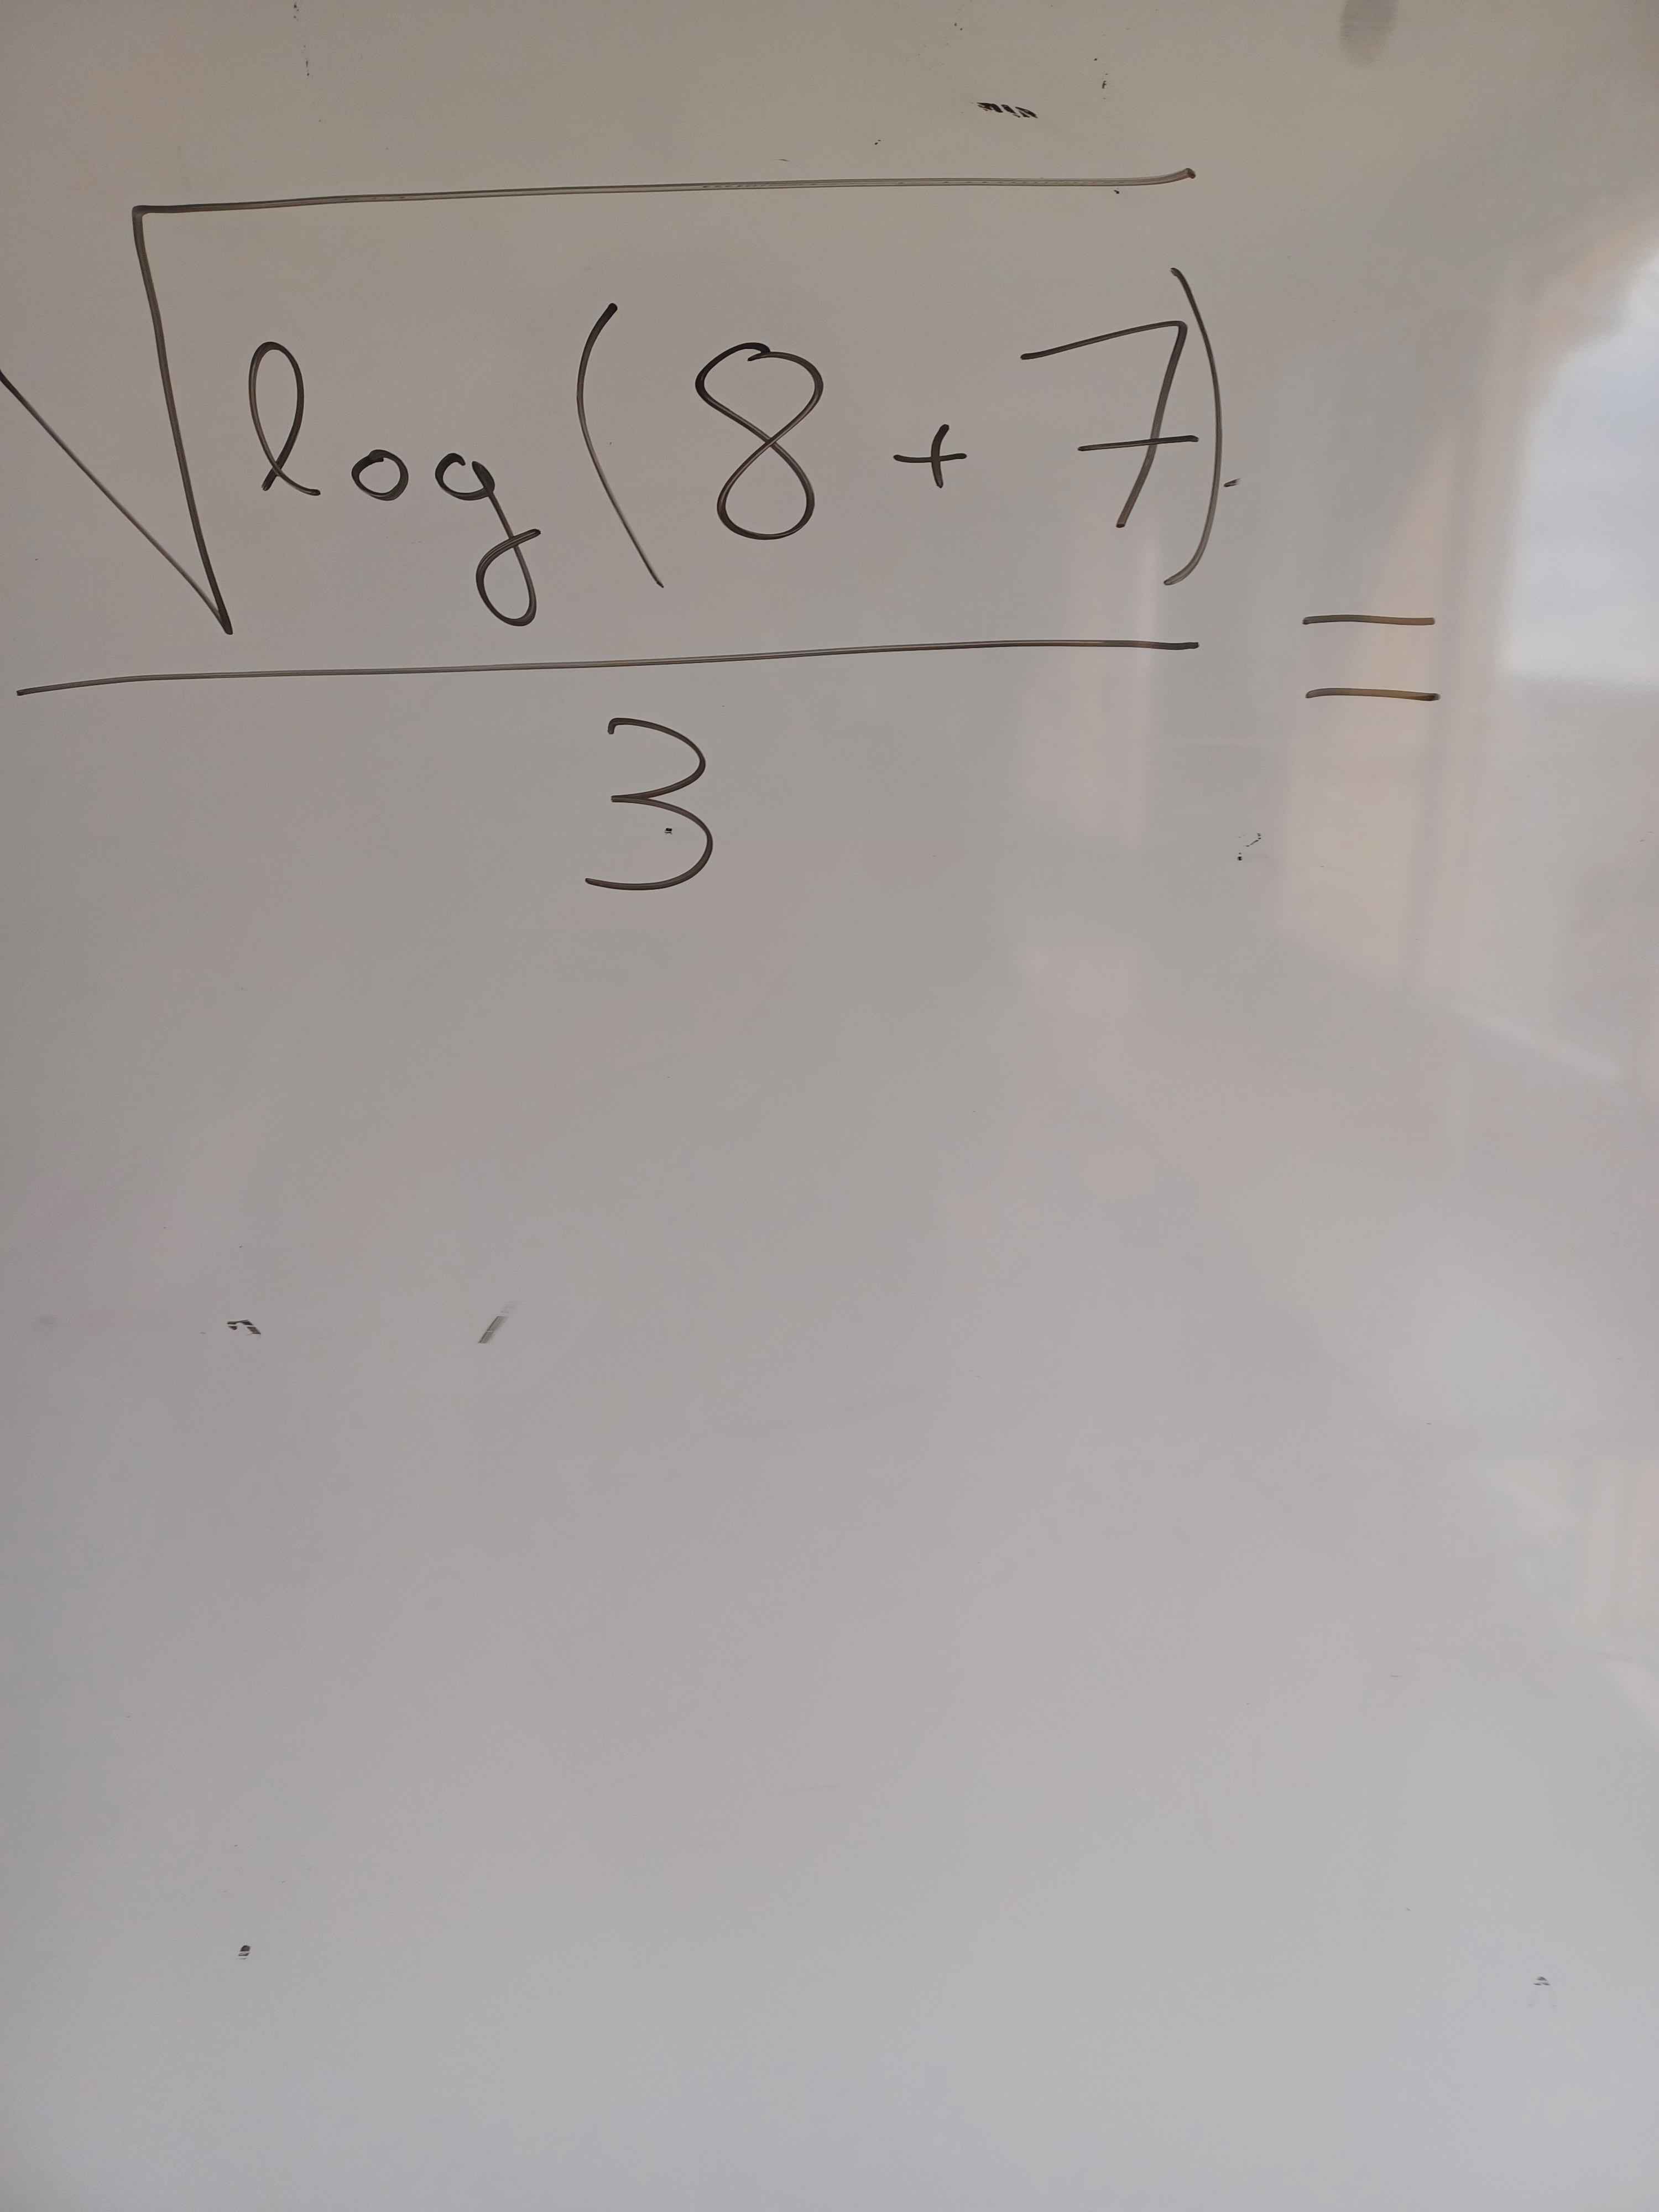 √log(8+7)
3
=